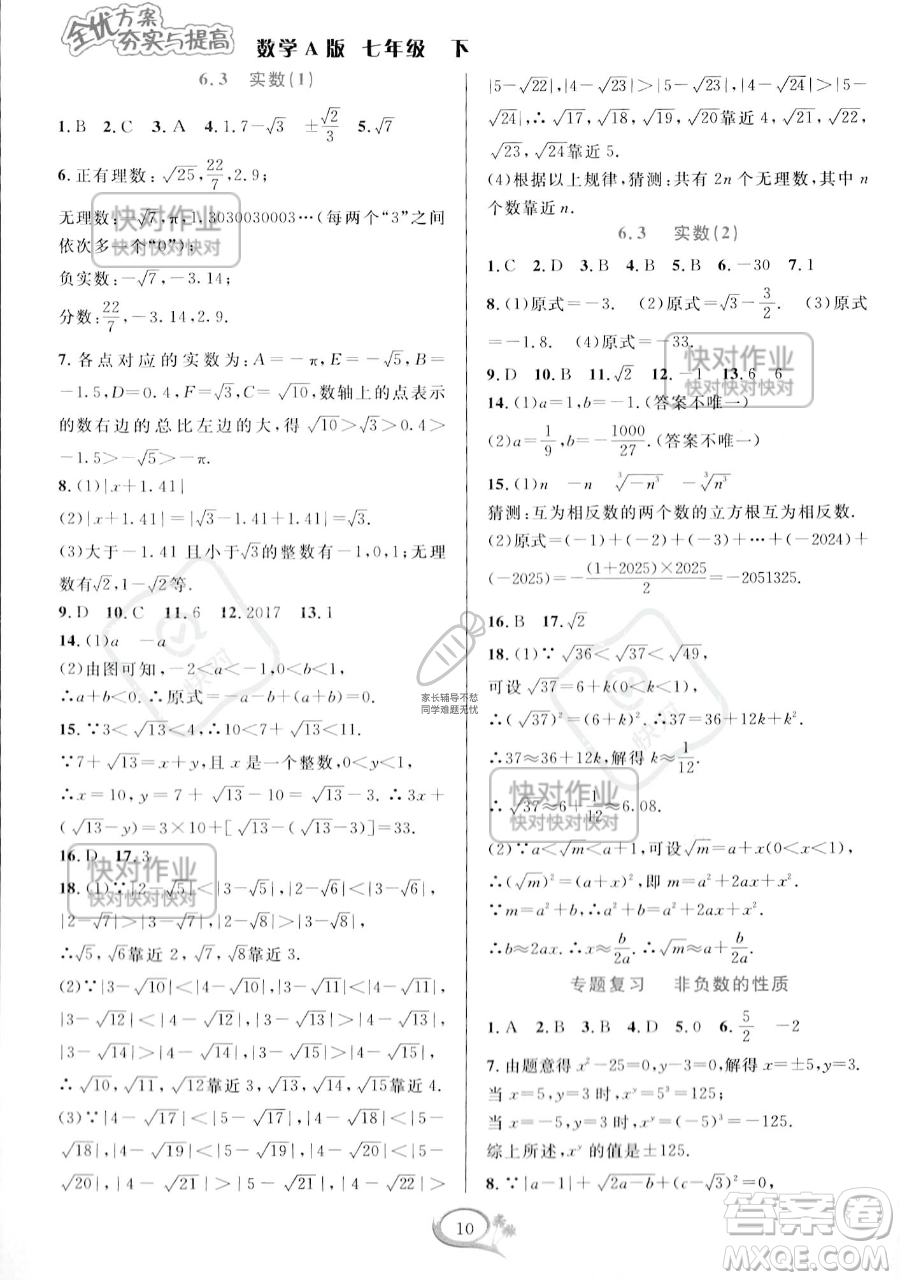 全优方案
夯实与提高
数学A版 七年级 下
6.3 实数(1)
1.B 2.C 3.A 4.1.7-√3 ±√2/3 5.√7
6.正有理数:√25,22/7,2.9;
无理数:-√7,π,1.3030030003…(每两个“3”之间
依次多一个“0”);
负实数:-√7,-3.14;
分数:22/7,-3.14,2.9.
7.各点对应的实数为:A=-π,E=-√5,B=
-1.5,D=0.4,F=√3,C=√10,数轴上的点表示
的数右边的总比左边的大,得√10>√3>0.4>
-1.5>-√5>-π.
8.(1)|x+1.41|
(2)|x+1.41|=|√3-1.41+1.41|=√3.
(3)大于-1.41且小于√3的整数有-1,0,1;无理
数有√2,1-√2等.
9.D 10.C 11.6 12.2017 13.1
14.(1)a -a
(2)由图可知,-2<a<-1,0<b<1,
∴a+b<0.∴原式=-a-b+(a+b)=0.
15.∵3<√13<4,∴10<7+√13<11.
∵7+√13=x+y,且x是一个整数,0<y<1,
∴x=10,y=7+√13-10=√13-3.∴3x+
(√13-y)=3×10+[√13-(√13-3)]=33.
16.D 17.3
18.(1)∵|2-√5|<|3-√5|,|2-√6|>|3-√6|,
|2-√7|>|3-√7|,|2-√8|>|3-√8|,
∴√5,√6靠近2,√7,√8靠近3.
(2)∵|3-√10|<|4-√10|,|3-√11|<|4-√11|,
|3-√12|<|4-√12|,|3-√13|>|4-√13|,
|3-√14|>|4-√14|,|3-√15|>|4-√15|,
∴√10,√11,√12靠近3,√13,√14,√15靠近4.
(3)∵|4-√17|<|5-√17|,|4-√18|<|5-
√18|,|4-√19|<|5-√19|,|4-√20|<|5-
√20|,|4-√21|>|5-√21|,|4-√22|>
|5-√22|,|4-√23|>|5-√23|,|4-√24|>|5-
√24|,∴√17,√18,√19,√20靠近4,√21,√22,
√23,√24靠近5.
(4)根据以上规律,猜测:共有2n个无理数,其中n
个数靠近n.
6.3 实数(2)
1.C 2.D 3.B 4.B 5.B 6.-30 7.1
8.(1)原式=-3. (2)原式=√3-3/2. (3)原式
=-1.8. (4)原式=-33.
9.D 10.B 11.√2 12.-1 13.6 6
14.(1)a=1,b=-1.(答案不唯一)
(2)a=1/9,b=-1000/27.(答案不唯一)
15.(1)n -n ∛-n³ -∛n³
猜测:互为相反数的两个数的立方根互为相反数.
(2)原式=(-1)+(-2)+(-3)+…+(-2024)+
(-2025)=-(1+2025)×2025/2=-2051325.
16.B 17.√2
18.(1)∵√36<√37<√49,
可设√37=6+k(0<k<1),
∴(√37)²=(6+k)²,∴37=36+12k+k².
∴37≈36+12k,解得k≈1/12.
∴√37≈6+1/12≈6.08.
(2)∵a<√m<a+1,可设√m=a+x(0<x<1),
∴(√m)²=(a+x)²,即m=a²+2ax+x².
∵m=a²+b,∴a²+b=a²+2ax+x².
∴b≈2ax.∴x≈b/2a.∴√m≈a+b/2a.
专题复习 非负数的性质
1.A 2.B 3.B 4.D 5.0 6.5/2 -2
7.由题意得x²-25=0,y-3=0,解得x=±5,y=3.
当x=5,y=3时,xʸ=5³=125;
当x=-5,y=3时,xʸ=(-5)³=-125.
综上所述,xʸ的值是±125.
8.∵|a-1|+√b+2+(c-√3)²=0,
10
家长辅导不愁
同学难题无忧
快对作业
快对快对快对
快对作业
快对快对快对
快对作业
快对快对快对
快对作业
快对快对快对
快对作业
快对快对快对
快对
答案圈
MXQE.COM